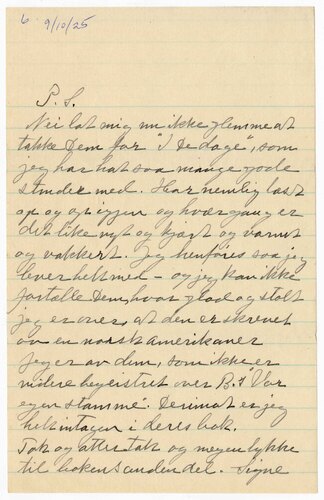 6 9/10/25
P.S.
Nei lat mig nu ikke glemme at
takke Dem for "I De dage", som
jeg har hat saa mange gode
stunder med. Har nemlig læst
op og op igjen og hver gang er
det like nyt og kjært og varmt
og vakkert. Jeg henføres saa jeg
lever helt med – og jeg kan ikke
fortælle Dem hvor glad og stolt
jeg er over, at den er skrevet
av en norskamerikaner
Jeg er av dem, som ikke er
videre begeistret over B.s "Vor
egen stamme". Derimot er jeg
helt indtagen i deres bok.
Tak og atter tak og megen lykke
til bokens anden del. Signe